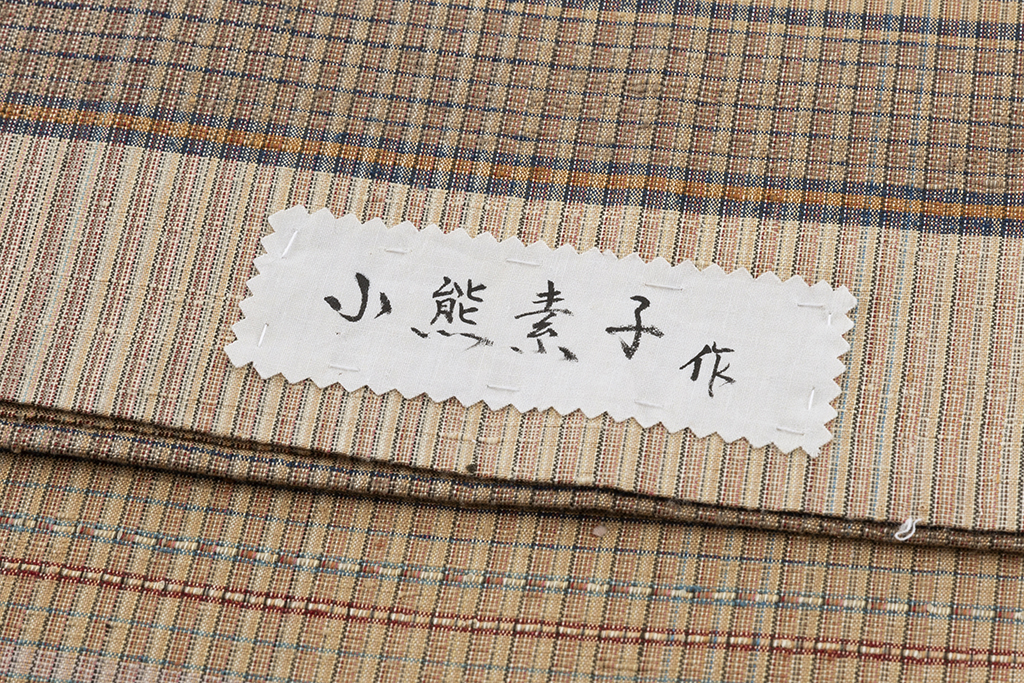 小熊素子作